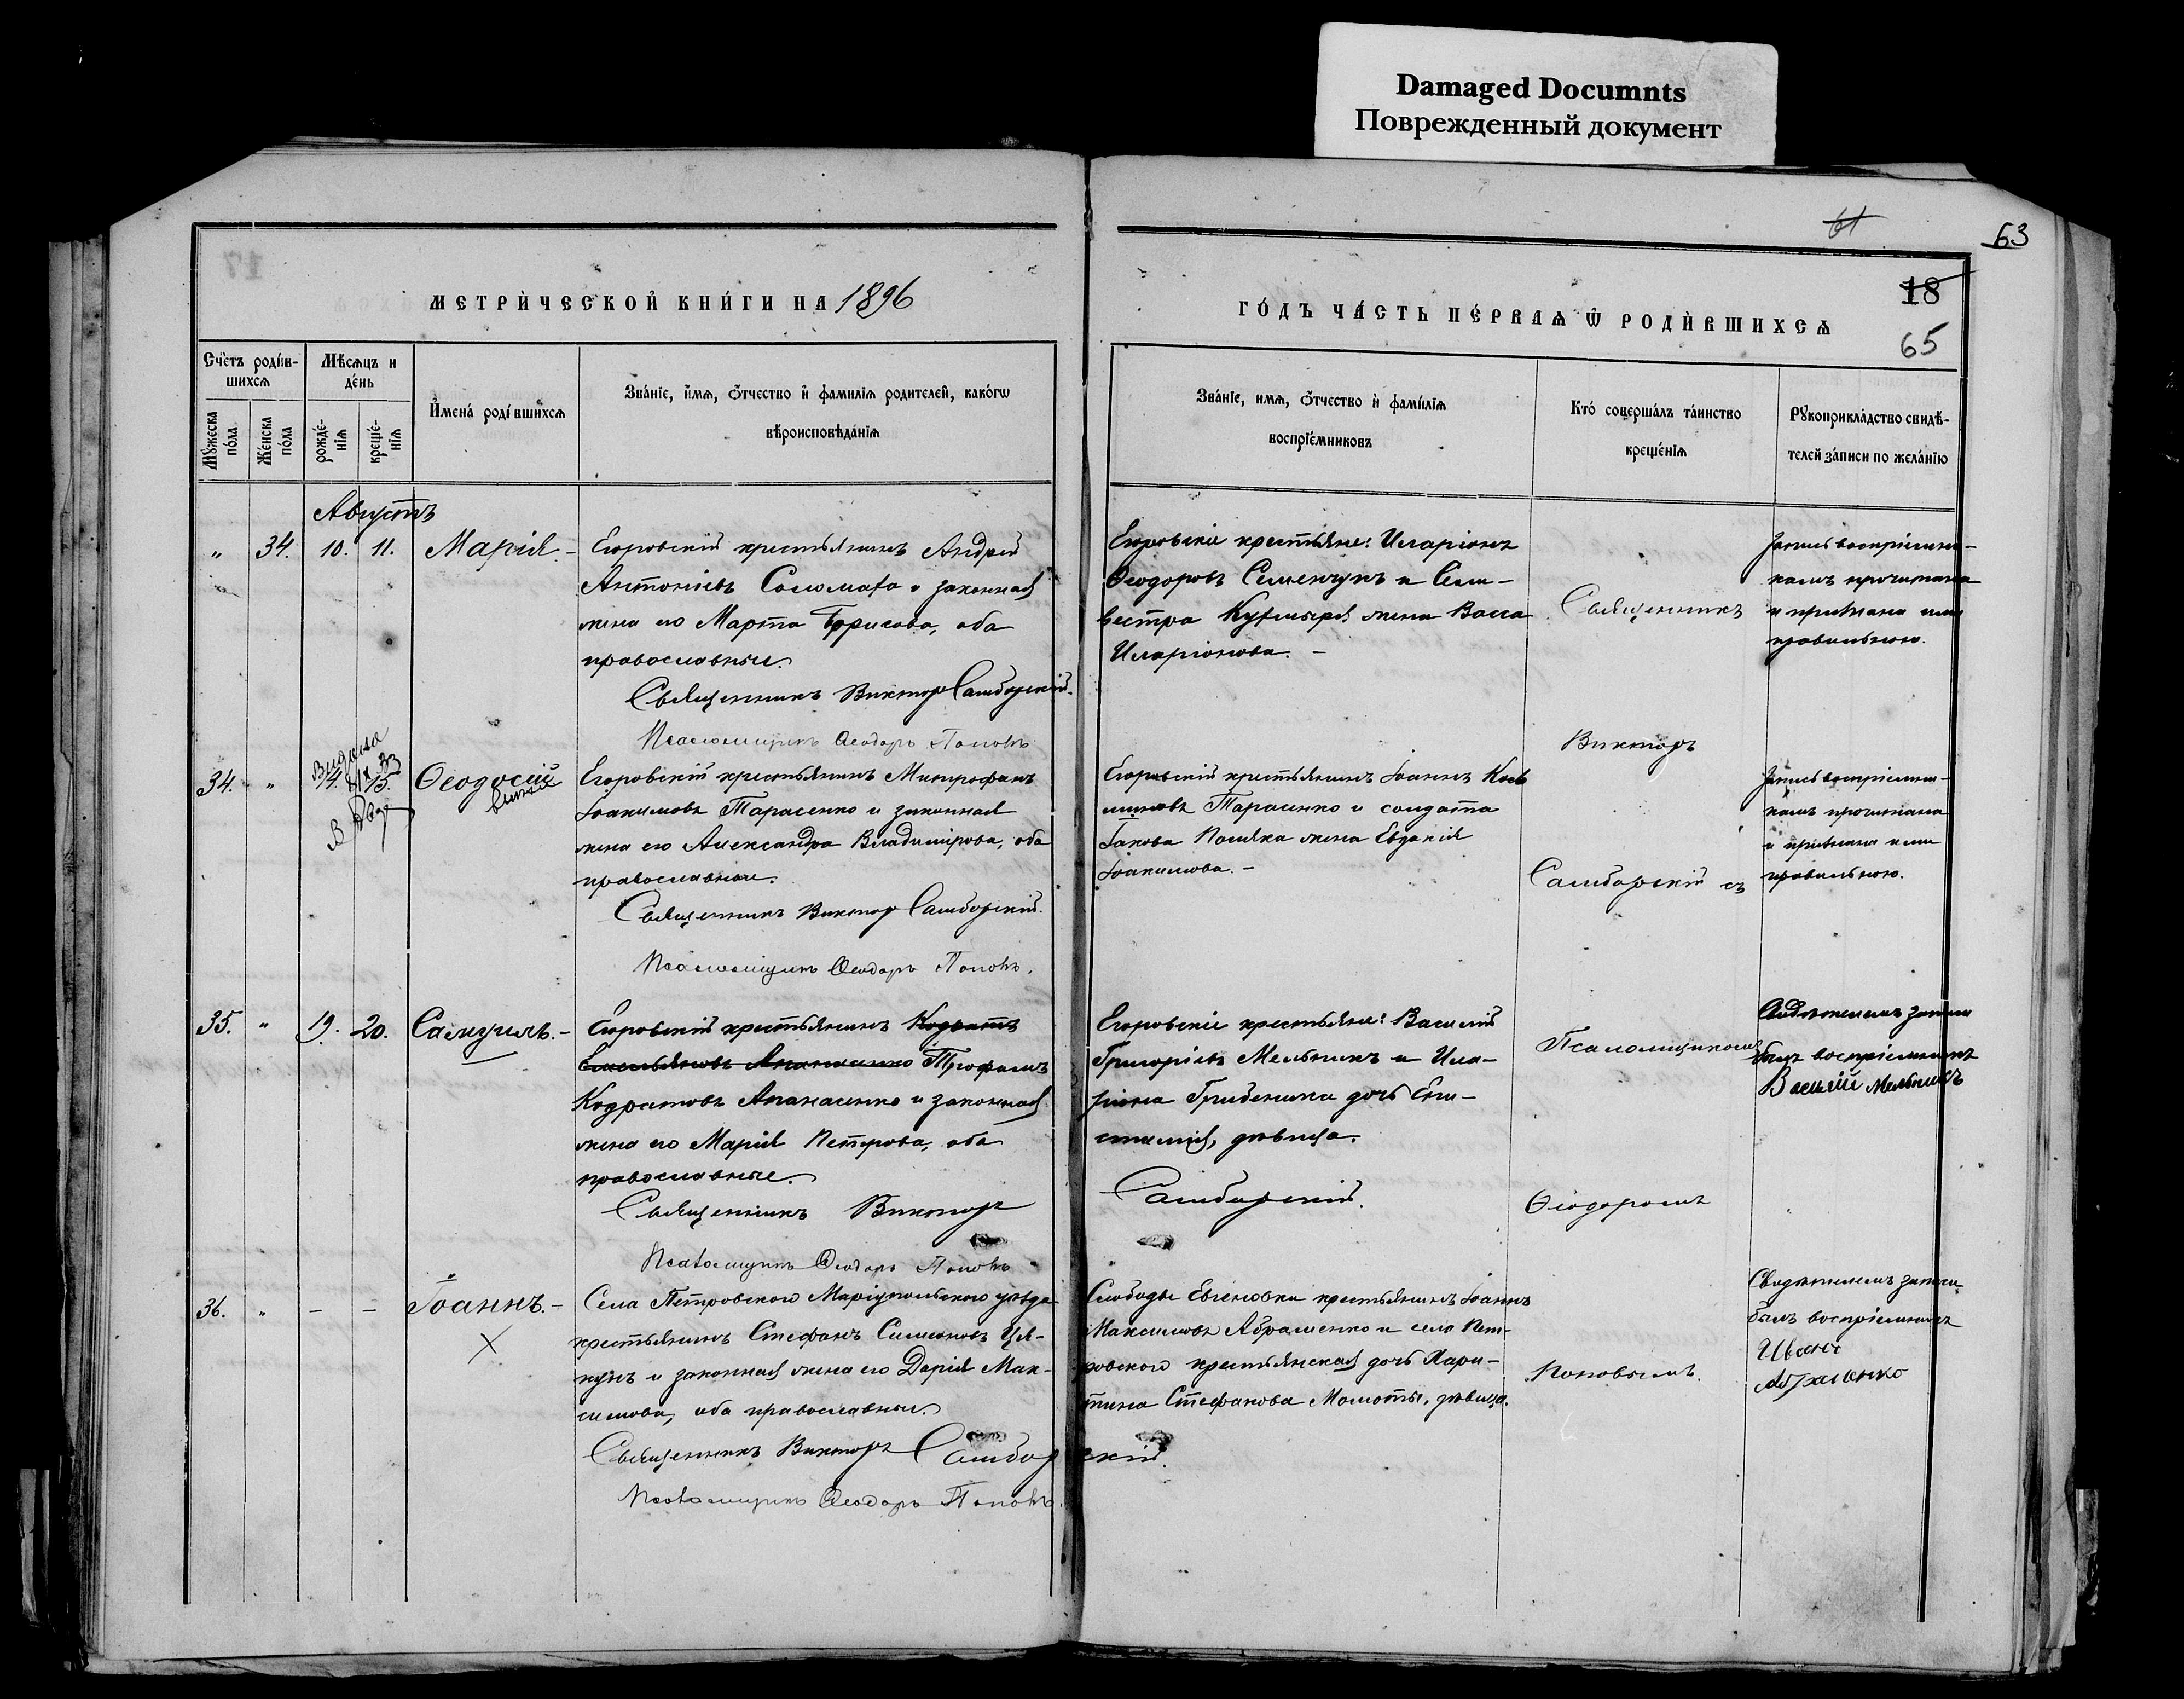 Damaged Documnts
Поврежденный документ
61
63
18
65
МЕТРИ́ЧЕСКОЙ КНИ́ГИ НА 1896
ГО́ДЪ ЧА́СТЬ ПЕ́РВАѦ Ѿ РОДИ́ВШИХСѦ
Сче́тъ роди́в-
шихсѧ
Мѣ́сѧцъ и
де́нь
Мꙋ́жеска
по́ла
Же́нска
по́ла
рожде́-
нїѧ
креще́-
нїѧ
И҆мена́ роди́вшихсѧ
Зва́нїе, и҆́мѧ, ѻ҆́тчество и҆ фами́лїѧ роди́телей, како́гѡ
вѣроисповѣ́данїѧ
Зва́нїе, имѧ, ѻ҆́тчество и҆ фами́лїѧ
воспрїе́мниковъ
Кто́ соверша́лъ та́инство
креще́нїѧ
Рꙋкоприкла́дство свидѣ́-
телей за́писи по жела́нїю
Августъ
„ 34. 10. 11. Марія. -
Егоровскій крестьянинъ Андрей
Антоніевъ Соломаха и законная
жена его Марта Борисова, оба
православные.
Священникъ Викторъ Самборскій.
Псаломщикъ Ѳеодоръ Поповъ
Егоровскіе крестьяне: Иларіонъ
Ѳеодоровъ Семенчукъ и Сели
вестра жена Васса
Иларіонова. -
Запись воспріемни-
камъ прочитана
и признана ими
правильною.
34. „ 14. 15. Ѳеодосій
Видана
IX 33
Егоровскій крестьянинъ Митрофанъ
Іоакимовъ Тарасенко и законная
жена его Александра Владимірова, оба
православные.
Священникъ Викторъ Самборскій.
Псаломщикъ Ѳеодоръ Поповъ.
Егоровскій крестьянинъ Іоаннъ Кось
миновъ Тарасенко и солдата
Іакова Поляка жена Евдокія
Іоакимова. -
Запись воспріемни-
камъ прочитана
и признана ими
правильною.
35. „ 19. 20. Самуилъ. -
Егоровскій крестьянинъ Кодратъ
Емельяновъ Апанасенко Трофимъ
Кодратовъ Апанасенко и законная
жена его Марія Петрова, оба
православные.
Священникъ Викторъ Самборскій.
Псаломщикъ Ѳеодоръ Поповъ
Егоровскіе крестьяне: Василій
Григорьевъ Мельникъ и Ила-
ріона Гребеника дочь Епи-
стимія, дѣвица.
Свидѣтелемъ записи
былъ воспріемникъ
Василій Мельникъ
36. „ - - Іоаннъ. -
Села Петровскаго Маріупольскаго уѣзда
крестьянинъ Стефанъ Симеоновъ Ця-
кунъ и законная жена его Дарія Мак-
симова, оба православные.
Священникъ Викторъ Самборскій.
Псаломщикъ Ѳеодоръ Поповъ.
Слободы Евгеновки крестьянинъ Іоаннъ
Максимовъ Абраменко и села Пет-
ровскаго крестьянская дочь Хари-
тина Стефанова Молоты, дѣвица.
Свидѣтелемъ записи
былъ воспріемникъ
Иванъ
Абраменко
Священникъ
Викторъ
Самборскій съ
Псаломщикомъ
Ѳеодоромъ
Поповымъ.